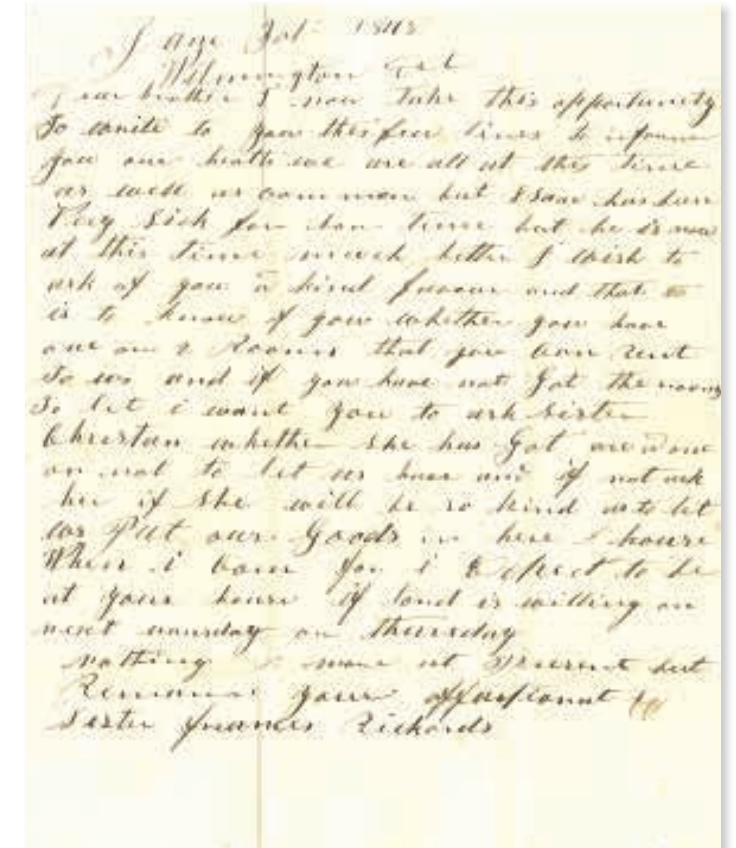 1848
Wilmington Del
Dear brother I now take this opportunity
to write to you this few lines to informe
you our health we are all at this time
as well as common but Isaac has been
Very Sick for som time but he is now
at this time mutch better I wish to
ask of you a kind favour and that
is to know of you whether you have
one or 2 Rooms that you can rent
to us and if you have not Got the rooms
to let i want you to ask Sister
Christan whether She has Got
or not to let us have and if not ask
her if She will be so kind as to let
us Put our Goods in here house
When i Com for i Expect to be
at your house if lord is willing on
next wensday or thursday
nothing more at Present but
Remains your
Sister frances Richards